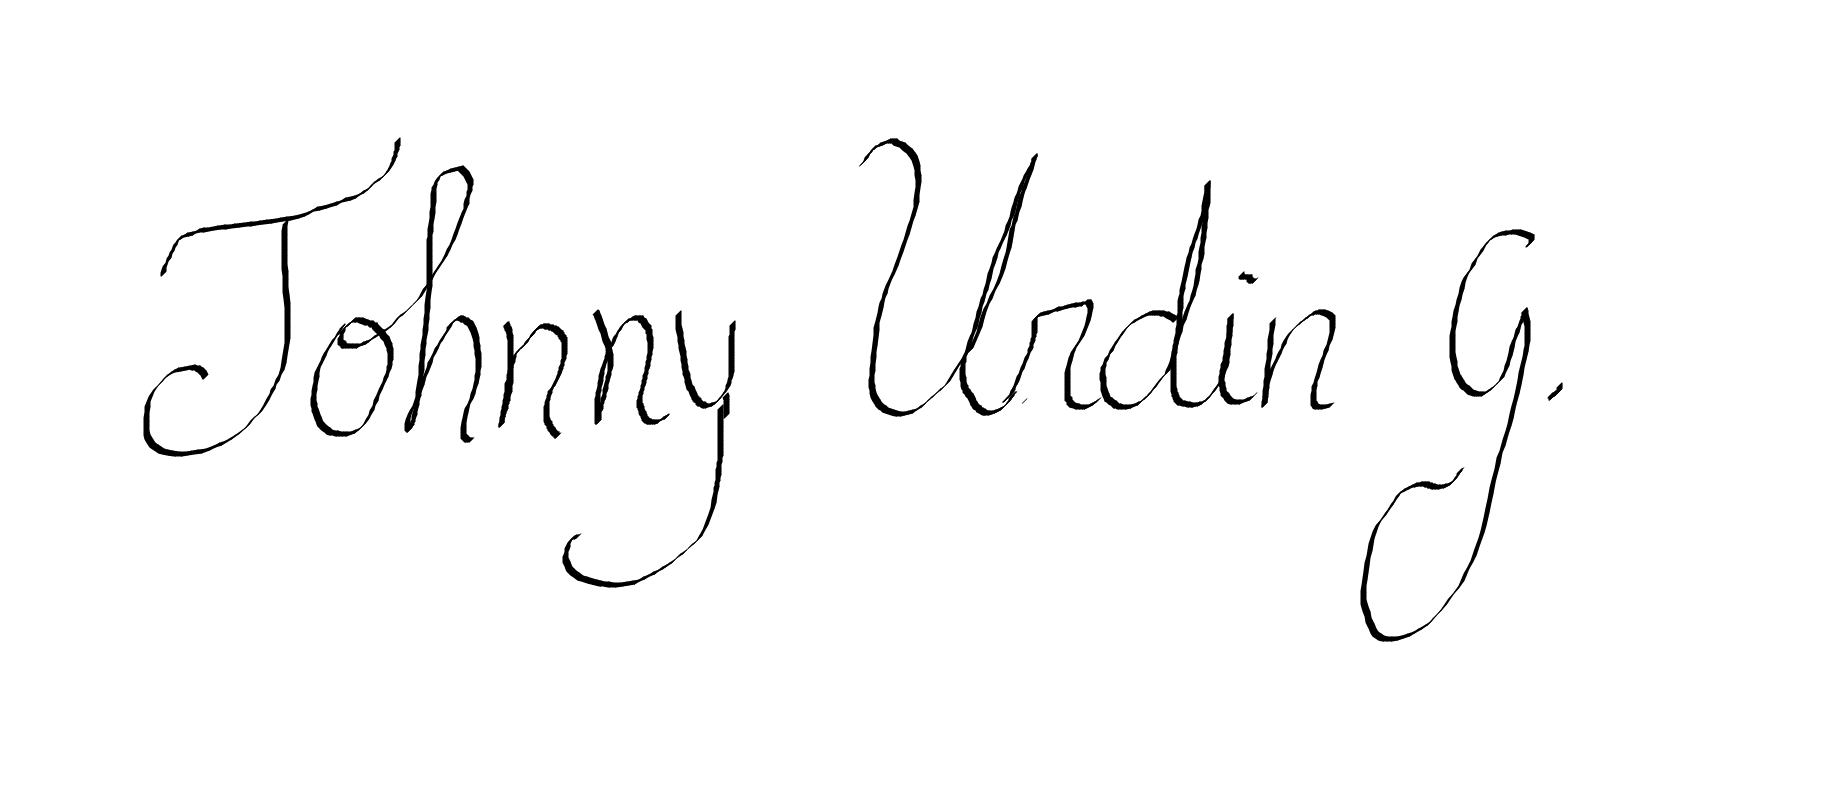 Johnny Urdin G.